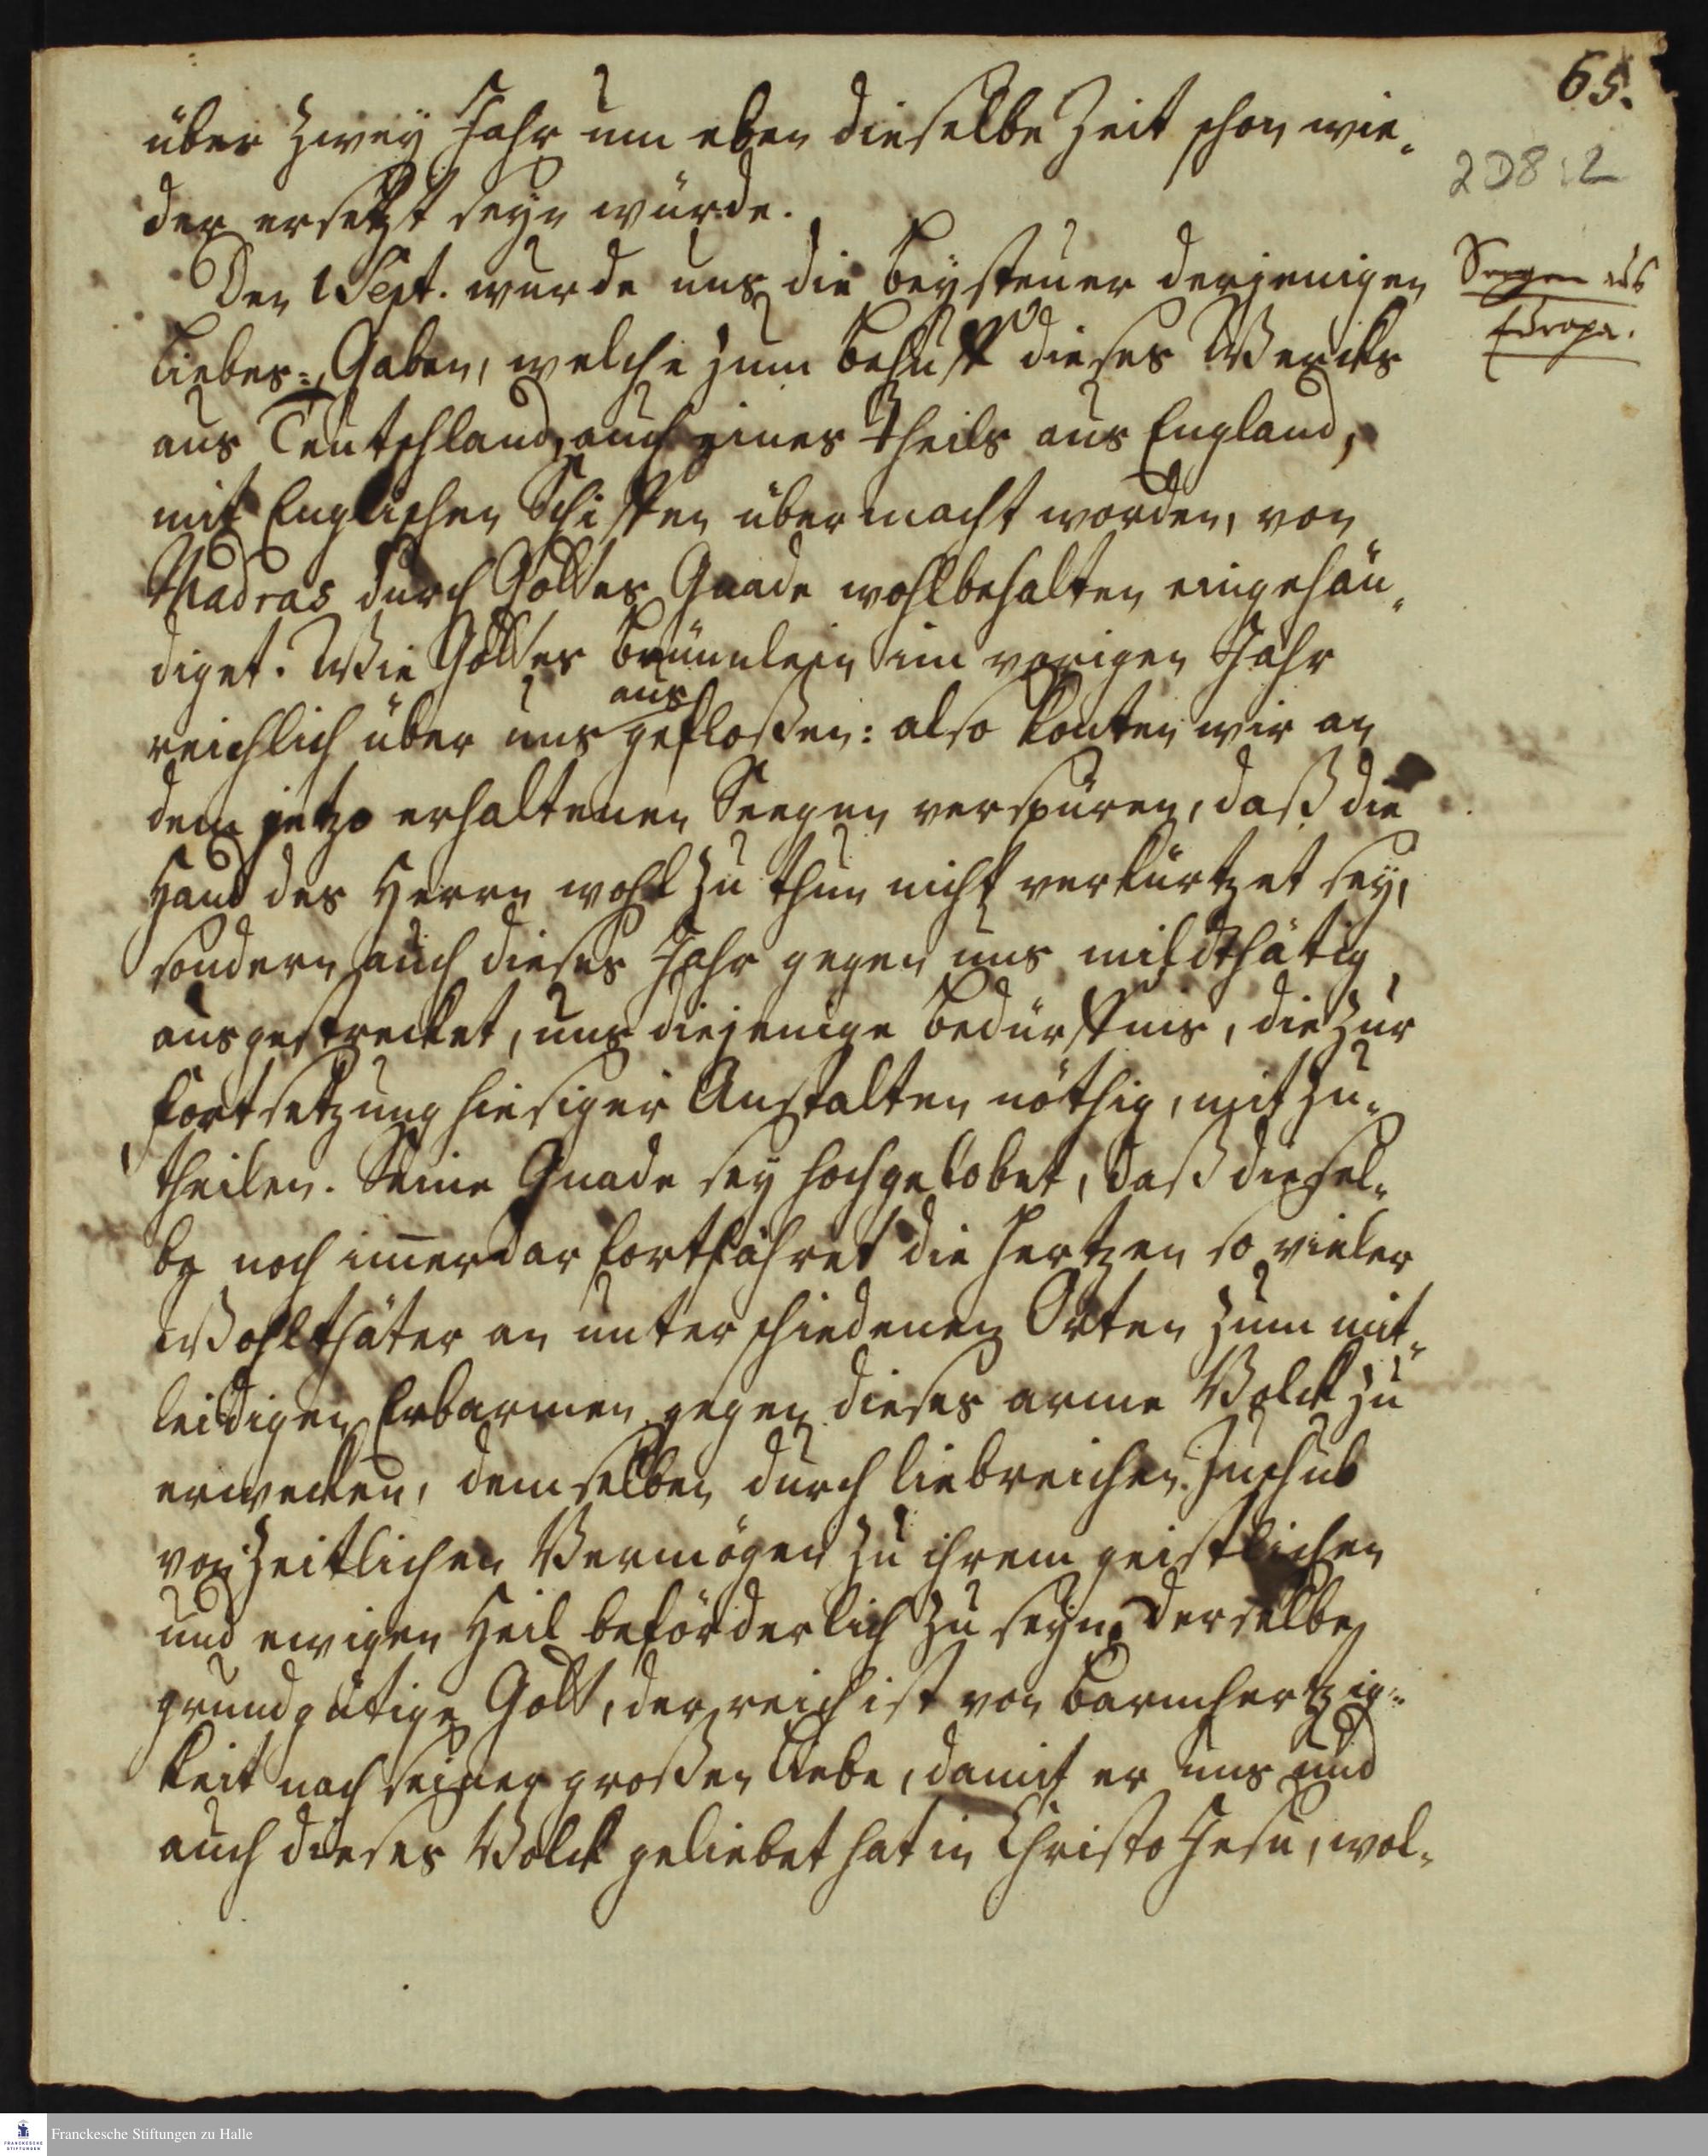 65.
2 D8:2
über zwey Jahr um eben dieselbe Zeit schon wie-
der ersetzt seyn würde.
Den 1 Sept. wurde uns die Beysteuer derjenigen
Seegen aus
Europa.
Liebes-Gaben, welche zum Behuff dieses Wercks
aus Teutschland, auch eines Theils aus England,
mit Englischen Schiffen übermacht worden, von
Madras durch Gottes Gnade wohlbehalten eingehän-
diget. Wie Gottes Brünnlein im vorigen Jahr
aus
reichlich über uns gefloßen: also konten wir an
dem jetzo erhaltenen Seegen verspüren, daß die
Hand des Herrn wohl zu thun nicht verkürtzet sey,
sondern auch dieses Jahr gegen uns mildthätig
ausgestrecket, uns diejenige Bedürffnis, die zur
Fortsetzung hiesiger Anstalten nöthig, mit zu-
theilen. Seine Gnade sey hochgelobet, daß diesel-
be noch im̄erdar fortfähret die Hertzen so vieler
Wohlthäter an unterschiedenen Orten zum mit-
leidigen Erbarmen gegen dieses arme Volck zu
erwecken, demselben durch liebreichen Zuschub
von zeitlichen Vermögen zu ihrem geistlichen
und ewigen Heil beförderlich zu seyn. Derselbe
grundgütige Gott, der reich ist von Barmhertzig-
keit nach seiner großen Liebe, damit er uns und
auch dieses Volck geliebet hat in Christo Jesu, wol-
Franckesche Stiftungen zu Halle
FRANCKESCHE
STIFTUNGEN